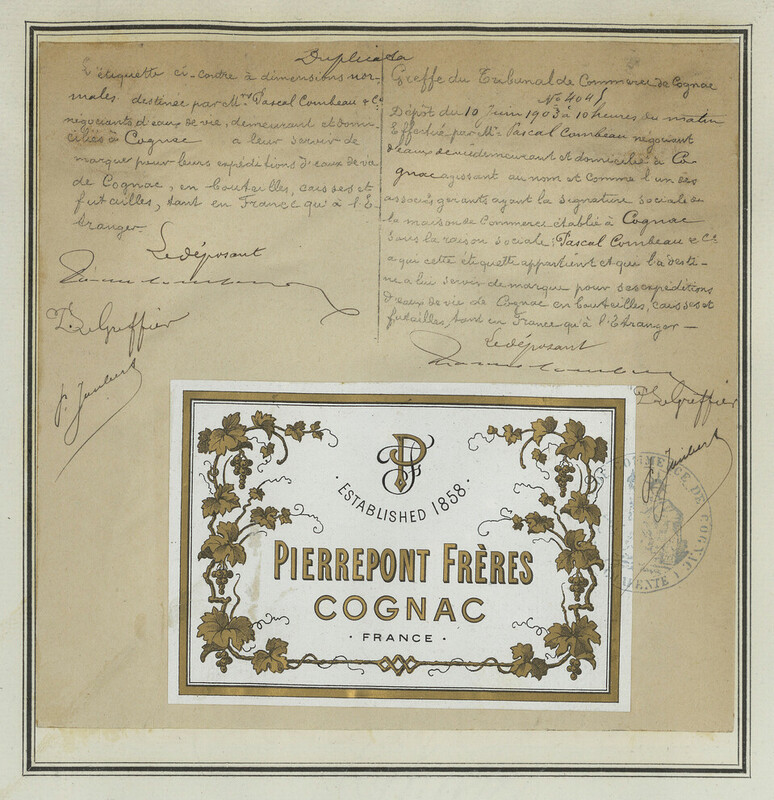 Duplicata
L'étiquette ci-contre à dimensions nor-
males destinée par Mrs Pascal Combeau & Cie
négociants d'eaux de vie, demeurant et domi-
ciliés à Cognac à leur servir de
marque pour leurs expéditions d'eaux de vie
de Cognac, en bouteilles, caisses et
futailles, tant en France qu'à l'É-
tranger.
Le déposant
Le Greffier
P. Jaubert
Greffe du Tribunal de Commerce de Cognac
No 4045
Dépôt du 10 Juin 1903 à 10 heures du matin
Effectué par Mr Pascal Combeau négociant
d'eaux de vie demeurant et domicilié à Co
gnac agissant au nom et comme l'un des
associés gerants ayant la signature sociale de
la maison de Commerce établie à Cognac
sous la raison sociale: Pascal Combeau & Cie
a qui cette étiquette appartient et qui l'a desti-
née à lui servir de marque pour ses expéditions
d'eaux de vie de Cognac en bouteilles, caisses et
futailles, tant en France qu'à l'Etranger —
Le déposant
Le Greffier
Jaubert
PF
· ESTABLISHED 1858 ·
PIERREPONT FRÈRES
COGNAC
· FRANCE ·
COMMERCE DE COGNAC
CHARENTE